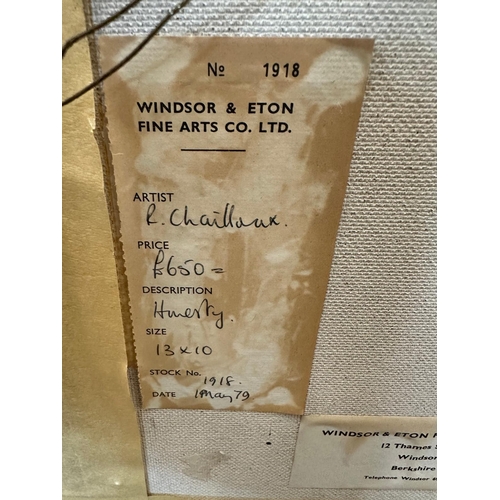 No 1918
WINDSOR & ETON
FINE ARTS CO. LTD.
ARTIST
R. Chailloux.
PRICE
£650=
DESCRIPTION
Honesty.
SIZE
13 x 10
STOCK No. 1918.
DATE 1 May 79
WINDSOR & ETON F
12 Thames S
Windsor
Berkshire
Telephone Windsor